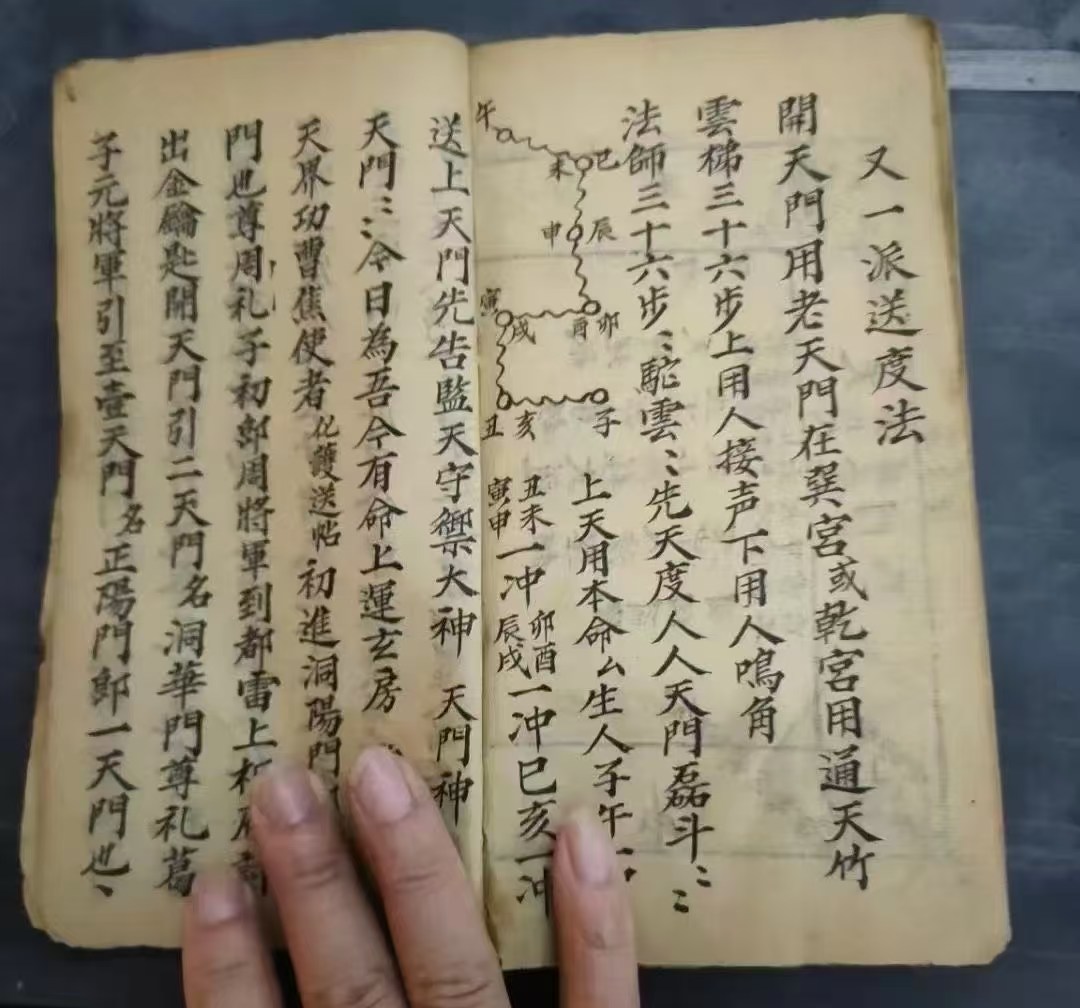 又一派送度法
開天門用老天門在巽宮或乾宮用通天竹
雲梯三十六步上用人接声下用人鳴角
法師三十六步〻駝雲〻先天度人人天門磊斗〻〻
上天用本命厶生人子午一
丑未
寅申
一冲
卯酉
辰戌
一冲巳亥一冲
午
未
巳
申
辰
寅
戌
酉
卯
丑
亥
子
送上天門先告監天守禦大神 天門神
天門〻〻今日為吾今有命上運玄房
天界功曹焦使者化護送帖初進洞陽門
門也尊周礼子初郎周將軍到都雷上
出金鑰匙開天門引二天門名洞華門尊礼葛
子元將軍引至壹天門名正陽門郎一天門也〻